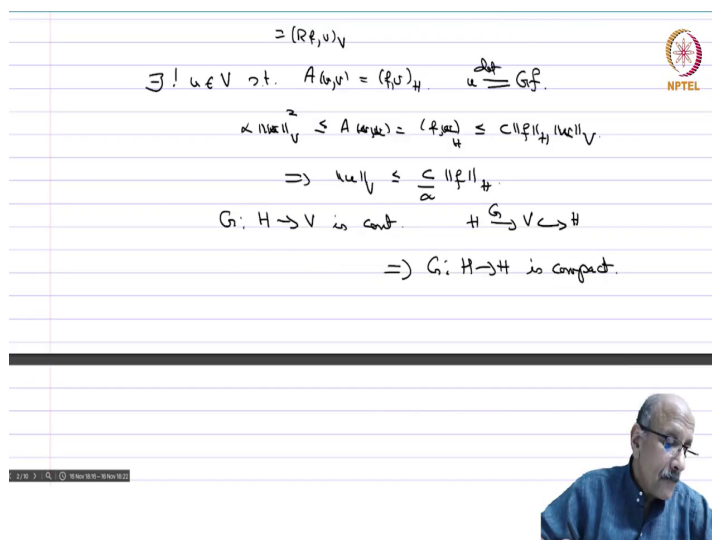 = (Rf, v)_V
∃! u ∈ V s.t. A(u,v) = (f,v)_H. u ≝ Gf.
α ||u||²_V ≤ A(u,u) = (f,u)_H ≤ C||f||_H ||u||_V.
⇒ ||u||_V ≤ C/α ||f||_H
G: H → V is cont. H →^G V ↪ H
⇒ G: H → H is compact.
NPTEL
2/10 16 Nov 18:15 - 16 Nov 18:22